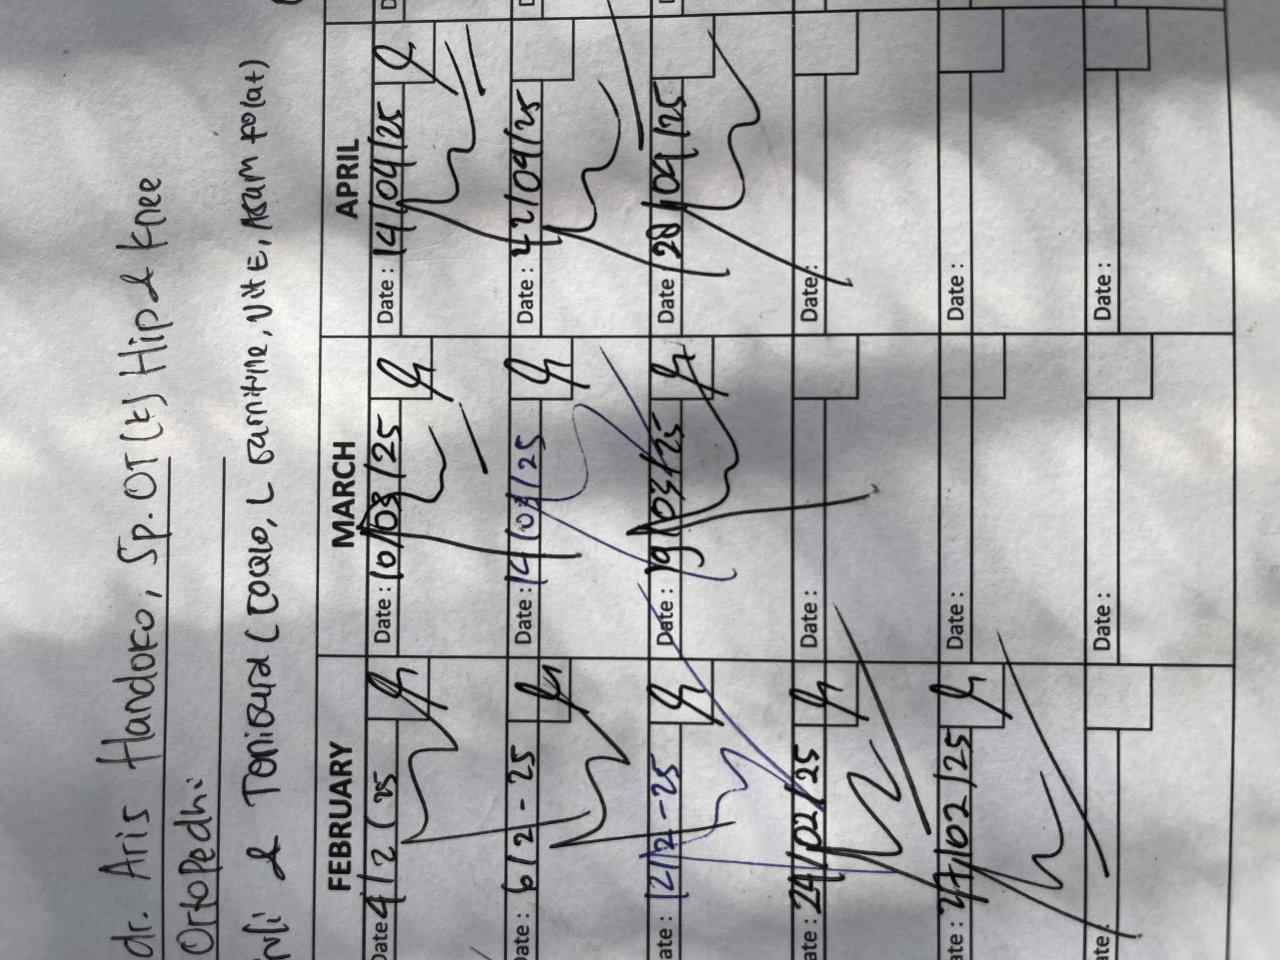 dr. Aris Handoko, Sp. OT (t) Hip & Knee
Ortopedhi
& Tonicard (Coalo, L Carnitine, Vit E, Asam Folat)
FEBRUARY MARCH APRIL
Date 4/2/25 Date: 10/03/25 Date: 14/04/25
ate: 6/2-25 Date: 14/03/25 Date: 22/04/25
ate: 12/2-25 Date: 19/03/25 Date: 28/04/25
te: 24/02/25 Date: Date:
ate: 27/02/25 Date: Date:
ate: Date: Date: